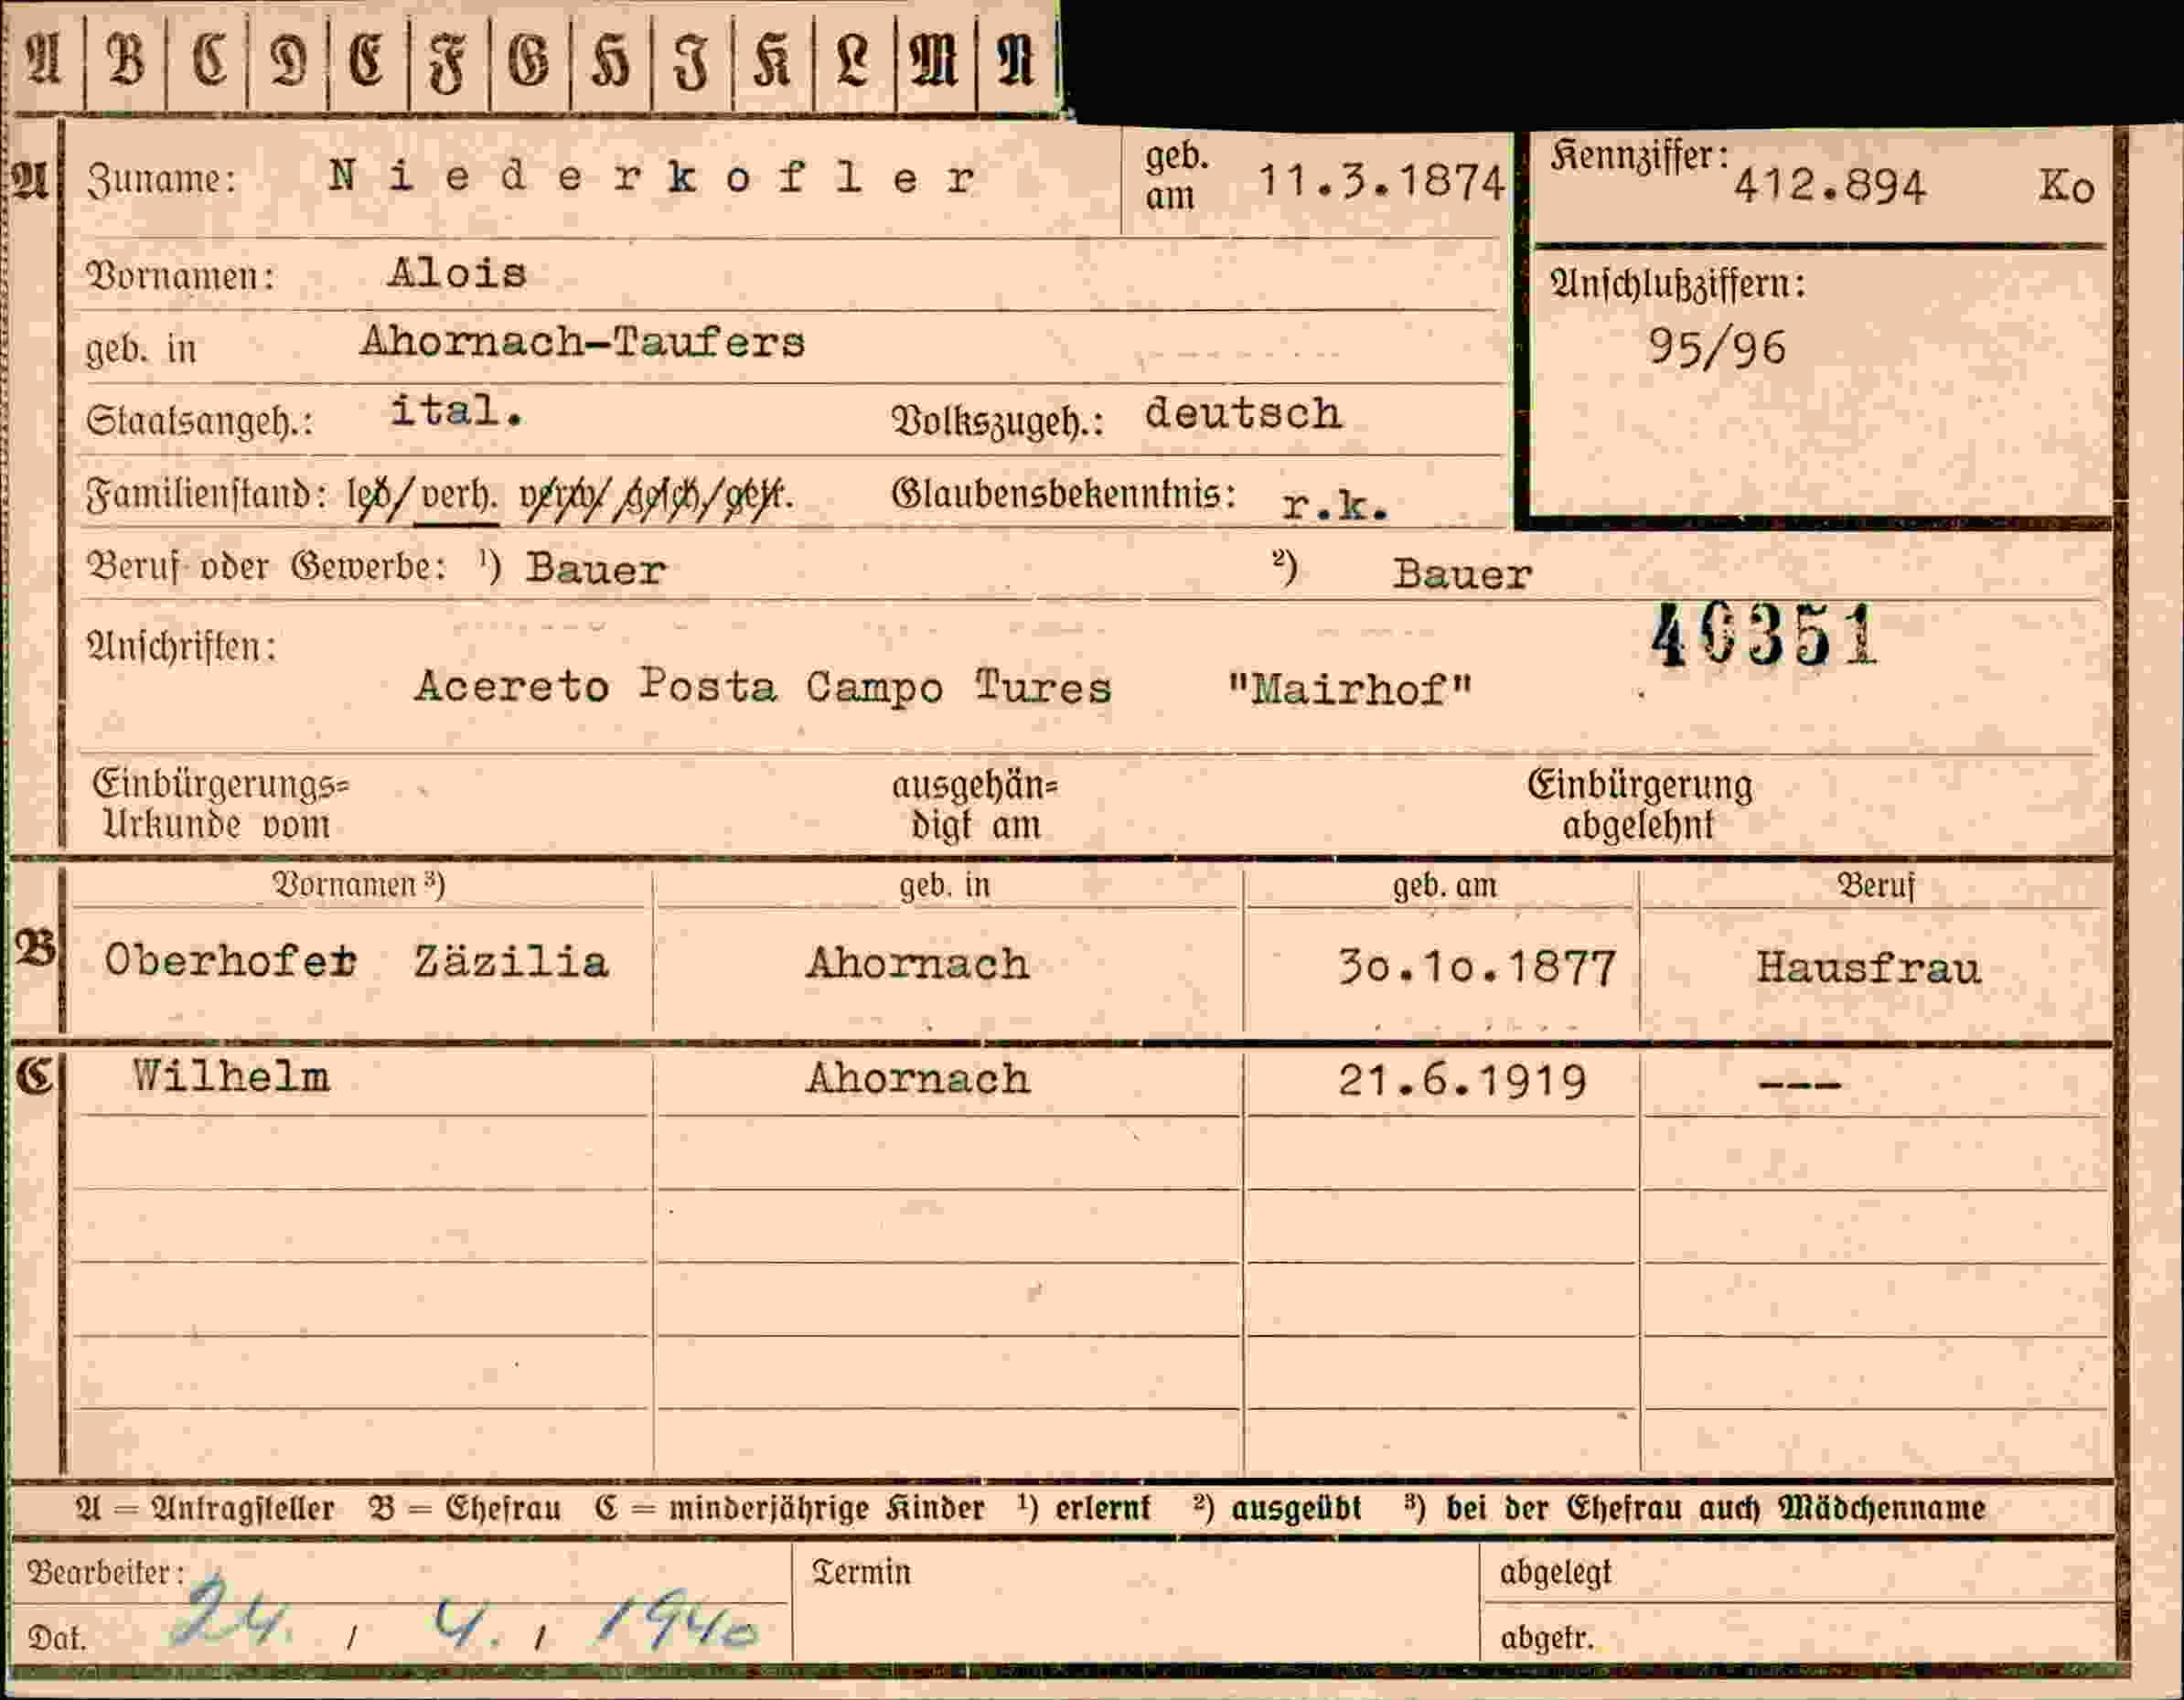 A B C D E F G H I K L M N
A Zuname: Niederkofler geb. am 11.3.1874 Kennziffer: 412.894 Ko
Vornamen: Alois Anschlußziffern:
geb. in Ahornach-Taufers 95/96
Staatsangeh.: ital. Volkszugeh.: deutsch
Familienstand: led/verh. verw/ gesch/get. Glaubensbekenntnis: r.k.
Beruf oder Gewerbe: ¹) Bauer ²) Bauer
40351
Anschriften:
Acereto Posta Campo Tures "Mairhof"
Einbürgerungs= ausgehän= Einbürgerung
Urkunde vom digt am abgelehnt
Vornamen ³) geb. in geb. am Beruf
B Oberhofer Zäzilia Ahornach 30.10.1877 Hausfrau
C Wilhelm Ahornach 21.6.1919 ---
A = Antragsteller B = Ehefrau C = minderjährige Kinder ¹) erlernt ²) ausgeübt ³) bei der Ehefrau auch Mädchenname
Bearbeiter: Termin abgelegt
Dat. 24. / 4. / 1940 abgetr.